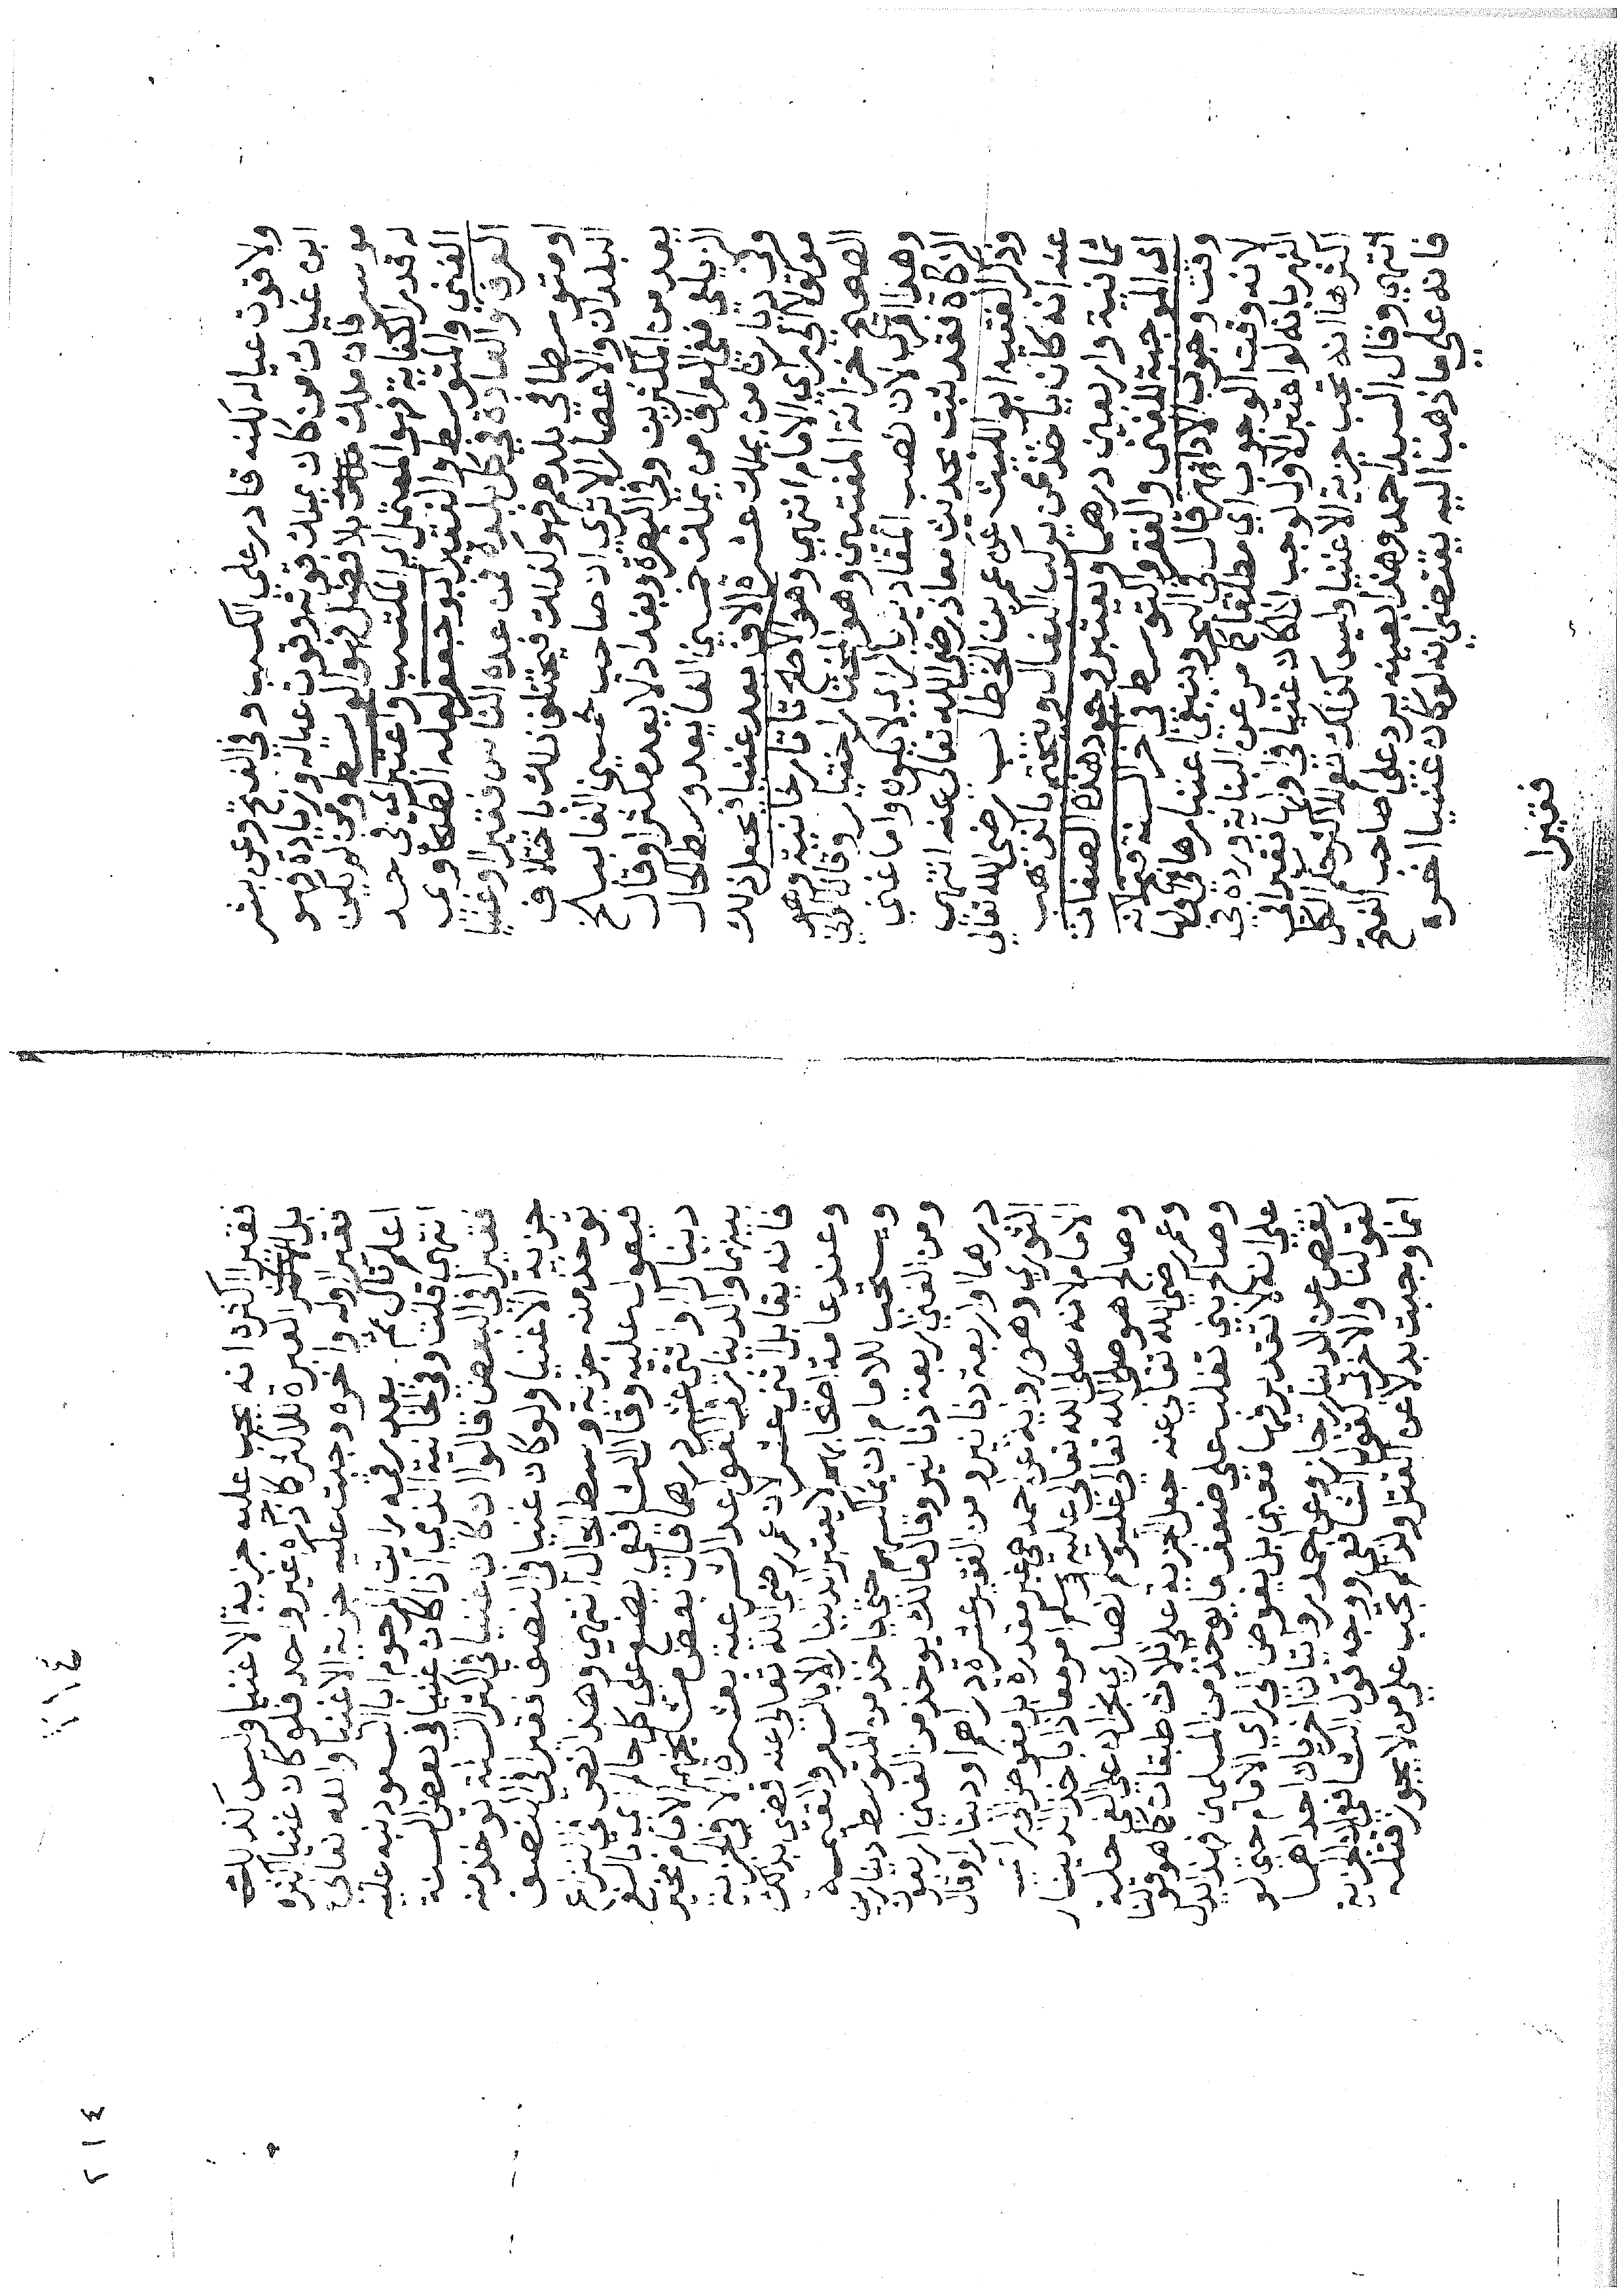 ولا قوت عياله لكنه قادر على الكسب وفي الفتح وعن بشر
ابن غياث من كان يملك قوته وقوت عياله وزيادة فهو
موسر فان ملك بلا فضل فهو الوسط ومن لم يكن
له قدر الكفاية فهو المعتمل اي المكتسب واعتبر اي في حد
الغني والمتوسط والفقير ابو جعفر لعله الطحاوي
العرف والعادة في كل بلدة فمن عده الناس فقيرا او غنيا
او متوسطا في بلدهم فهو كذلك فيختلف ذلك باختلاف
البلدان والاعصار الا ترى ان صاحب خمسين الفا ببلخ
يعد من المكثرين وفي البصرة وبغداد لا يعد مكثرا وقال
الزيلعي ففي العراق من يملك خمسين الفا يعد وسط الحال
وفي ديارنا من يملك عشرة الاف يعد غنيا فيجعل ذلك
موكولا الى راي الامام انتهى وهو الاصح تاتارخانية وهو
الصحيح خزانة المفتين وهو المختار اختيار وقال في
وهذا اقرب لان نصب المقادير بالراي لا يكون واما غني
الزكاة فقد ثبت بحديث معاذ رضي الله تعالى عنه انتهى
وذكر الفقيه ابو الليث عن عمر بن الخطاب رضي الله تعالى
عنه انه كان ياخذ ممن يركب البغال ويتختم بالذهب
ثمانية واربعين درهما ويعتبر وجود هذه الصفات
اي الموجبة للغنى والفقر والتوسط في اخر السنة فتح لانه
وقت وجوب الاداء نهر قال في البحر وينبغي اعتبارها في اولها
لانه وقت الوجوب اي مطلقا كما مر عن البناية ورده في
النهر بانه لو اعتبر الاول لوجب اذا كان غنيا في اولها فقيرا في
اكثرها انه تجب جزية الاغنيا وليس كذلك نعم الاكثر حكم الكل
انتهى وقال السيد احمد وهذا بعينه يرد على صاحب الفتح
فانه على ما ذهب اليه يقتضي انه لو كان غنيا اخره
فقيرا
فقيرا اكثره انه يجب عليه جزية الاغنيا وليس كذلك
بل العبرة للاكثر كما ذكره غير واحد فلو كان غنيا اكثره
فقيرا اوله واخره وجبت عليه جزية الاغنيا والله تعالى
اعلم قال ثم بعد رقمه رايت المرحوم ابا السعود نبه عليه
انتهى قلت وفي الخانية الذمي اذا كان غنيا في بعض السنة
فقيرا في البعض قالوا ان كان غنيا في اكثر السنة تؤخذ منه
جزية الاغنيا ولو كان غنيا في النصف فقيرا في النصف
تؤخذ منه جزية وسط الحال انتهى وهذا نص في النزاع
فيعول عليه وقال الشافعي يضع على كل حالم اي بالغ
دينارا او اثني عشر درهما قال بعض مشايخهم الامام مخير
بينهما والدينار في القواعد الشرعية بعشرة الا في الجزية
فانه يقابل اثني عشر لان عمر رضي الله تعالى عنه قضى بذلك
وعند عامة اصحابهم لا يعتبر الدينار الا بالسعر والقيمة
ويستحب للامام ان يماكسهم حتى ياخذ من المتوسط دينارين
ومن الغني اربعة دنانير وقال مالك يؤخذ من الغني اربعون
درهما او اربعة دنانير ومن الفقير عشرة دراهم او دينار وقال
الثوري وهو رواية عن احمد هي غير مقدرة بل مفوضة الى راي
الامام لانه صلى الله تعالى عليه وسلم امر معاذا باخذ الدينار
وصالح هو صلى الله تعالى عليه وسلم نصارى نجران على الفي حلة
وعمر رضي الله تعالى عنه جعل الجزية على ثلاث طبقات كما هو قولنا
وصالح بني تغلب على ضعف ما يؤخذ من المسلمين فهذا يدل
على انه لا تقدير فيها معين بل يفوض الى راي الامام حتى لو
نقص عن الدينار جاز وعن احمد روايتان اخريان احداهما
كقولنا والاخرى كقول الشافعي ووجه قول الشافعي ان الجزية
انما وجبت بدلا عن القتل ولذا لم تجب على من لا يجوز قتله
٢١٤